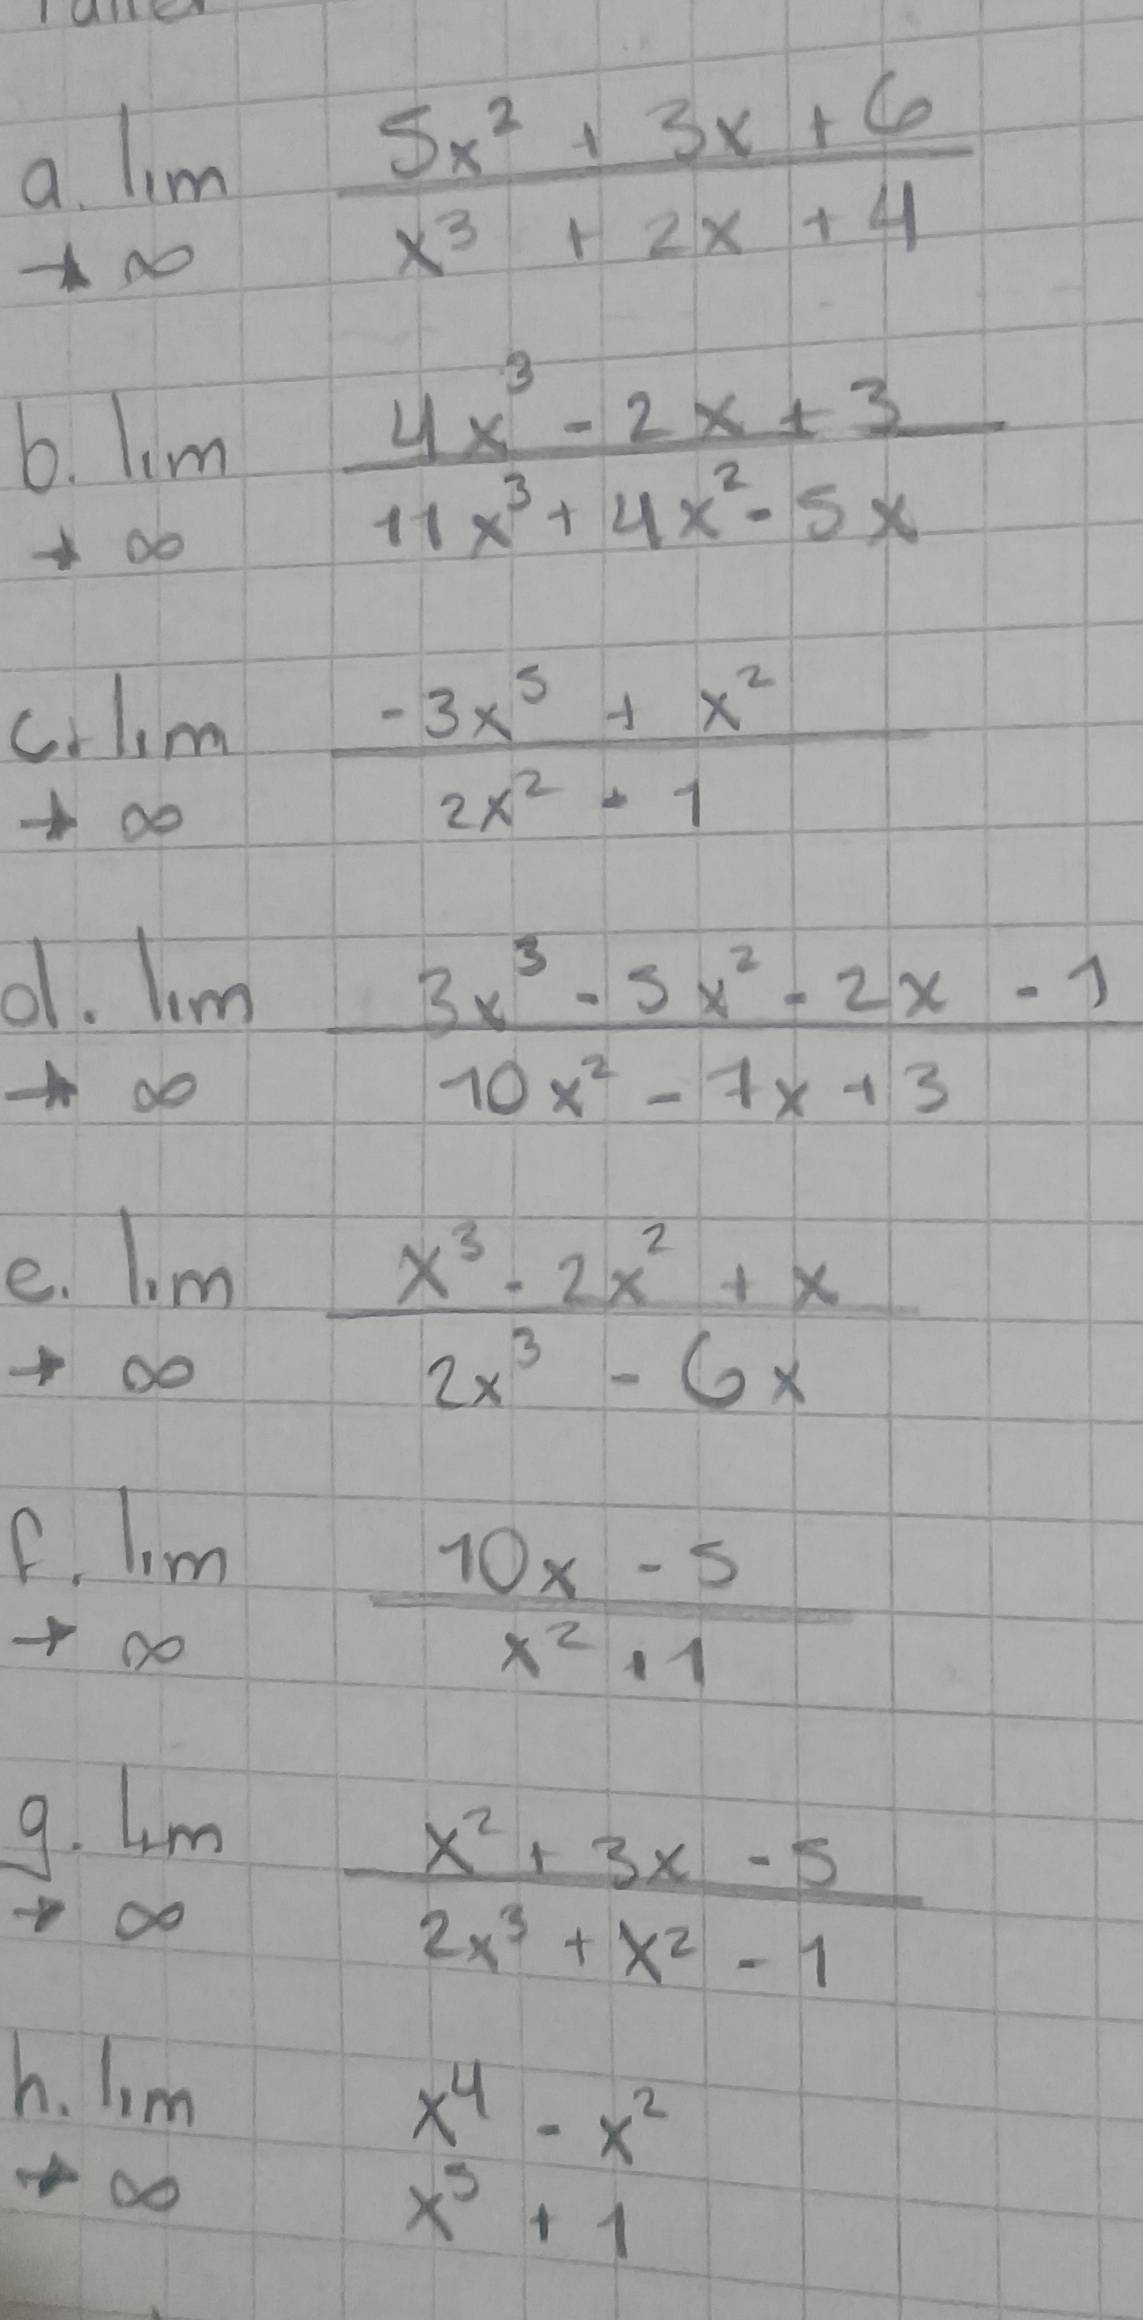 Taller
a. lim (5x² + 3x + 6) / (x³ + 2x + 4)
→ ∞
b. lim (4x³ - 2x + 3) / (11x³ + 4x² - 5x)
→ ∞
c. lim (-3x⁵ + x²) / (2x² - 1)
→ ∞
d. lim (3x³ - 5x² - 2x - 1) / (10x² - 7x + 3)
→ ∞
e. lim (x³ - 2x² + x) / (2x³ - 6x)
→ ∞
f. lim (10x - 5) / (x² + 1)
→ ∞
g. Lim (x² + 3x - 5) / (2x³ + x² - 1)
→ ∞
h. lim x⁴ - x²
→ ∞ x⁵ + 1